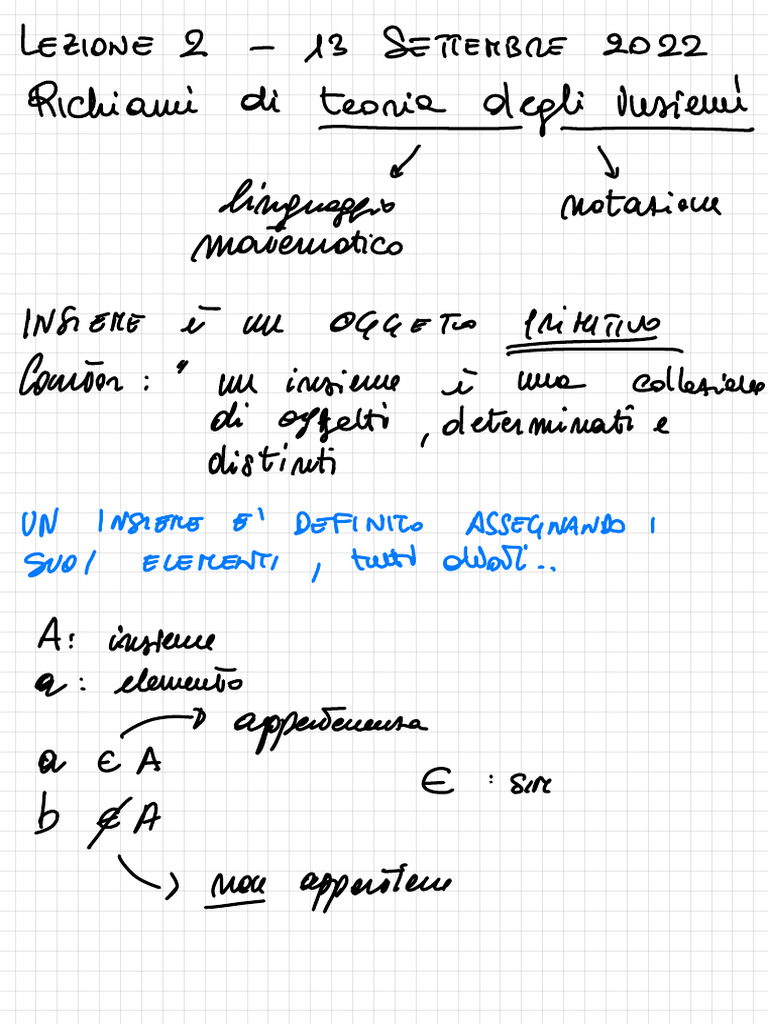 LEZIONE 2 - 13 SETTEMBRE 2022
Richiami di teoria degli insiemi
linguaggio notazione
matematico
INSIEME è un OGGETTO PRIMITIVO
Cantor: " un insieme è una collezione
di oggetti, determinati e
distinti
UN INSIEME E' DEFINITO ASSEGNANDO I
SUOI ELEMENTI, tutti
A: insieme
a: elemento
appartenenza
a ∈ A
∈ : sim
b ∉ A
non appartiene